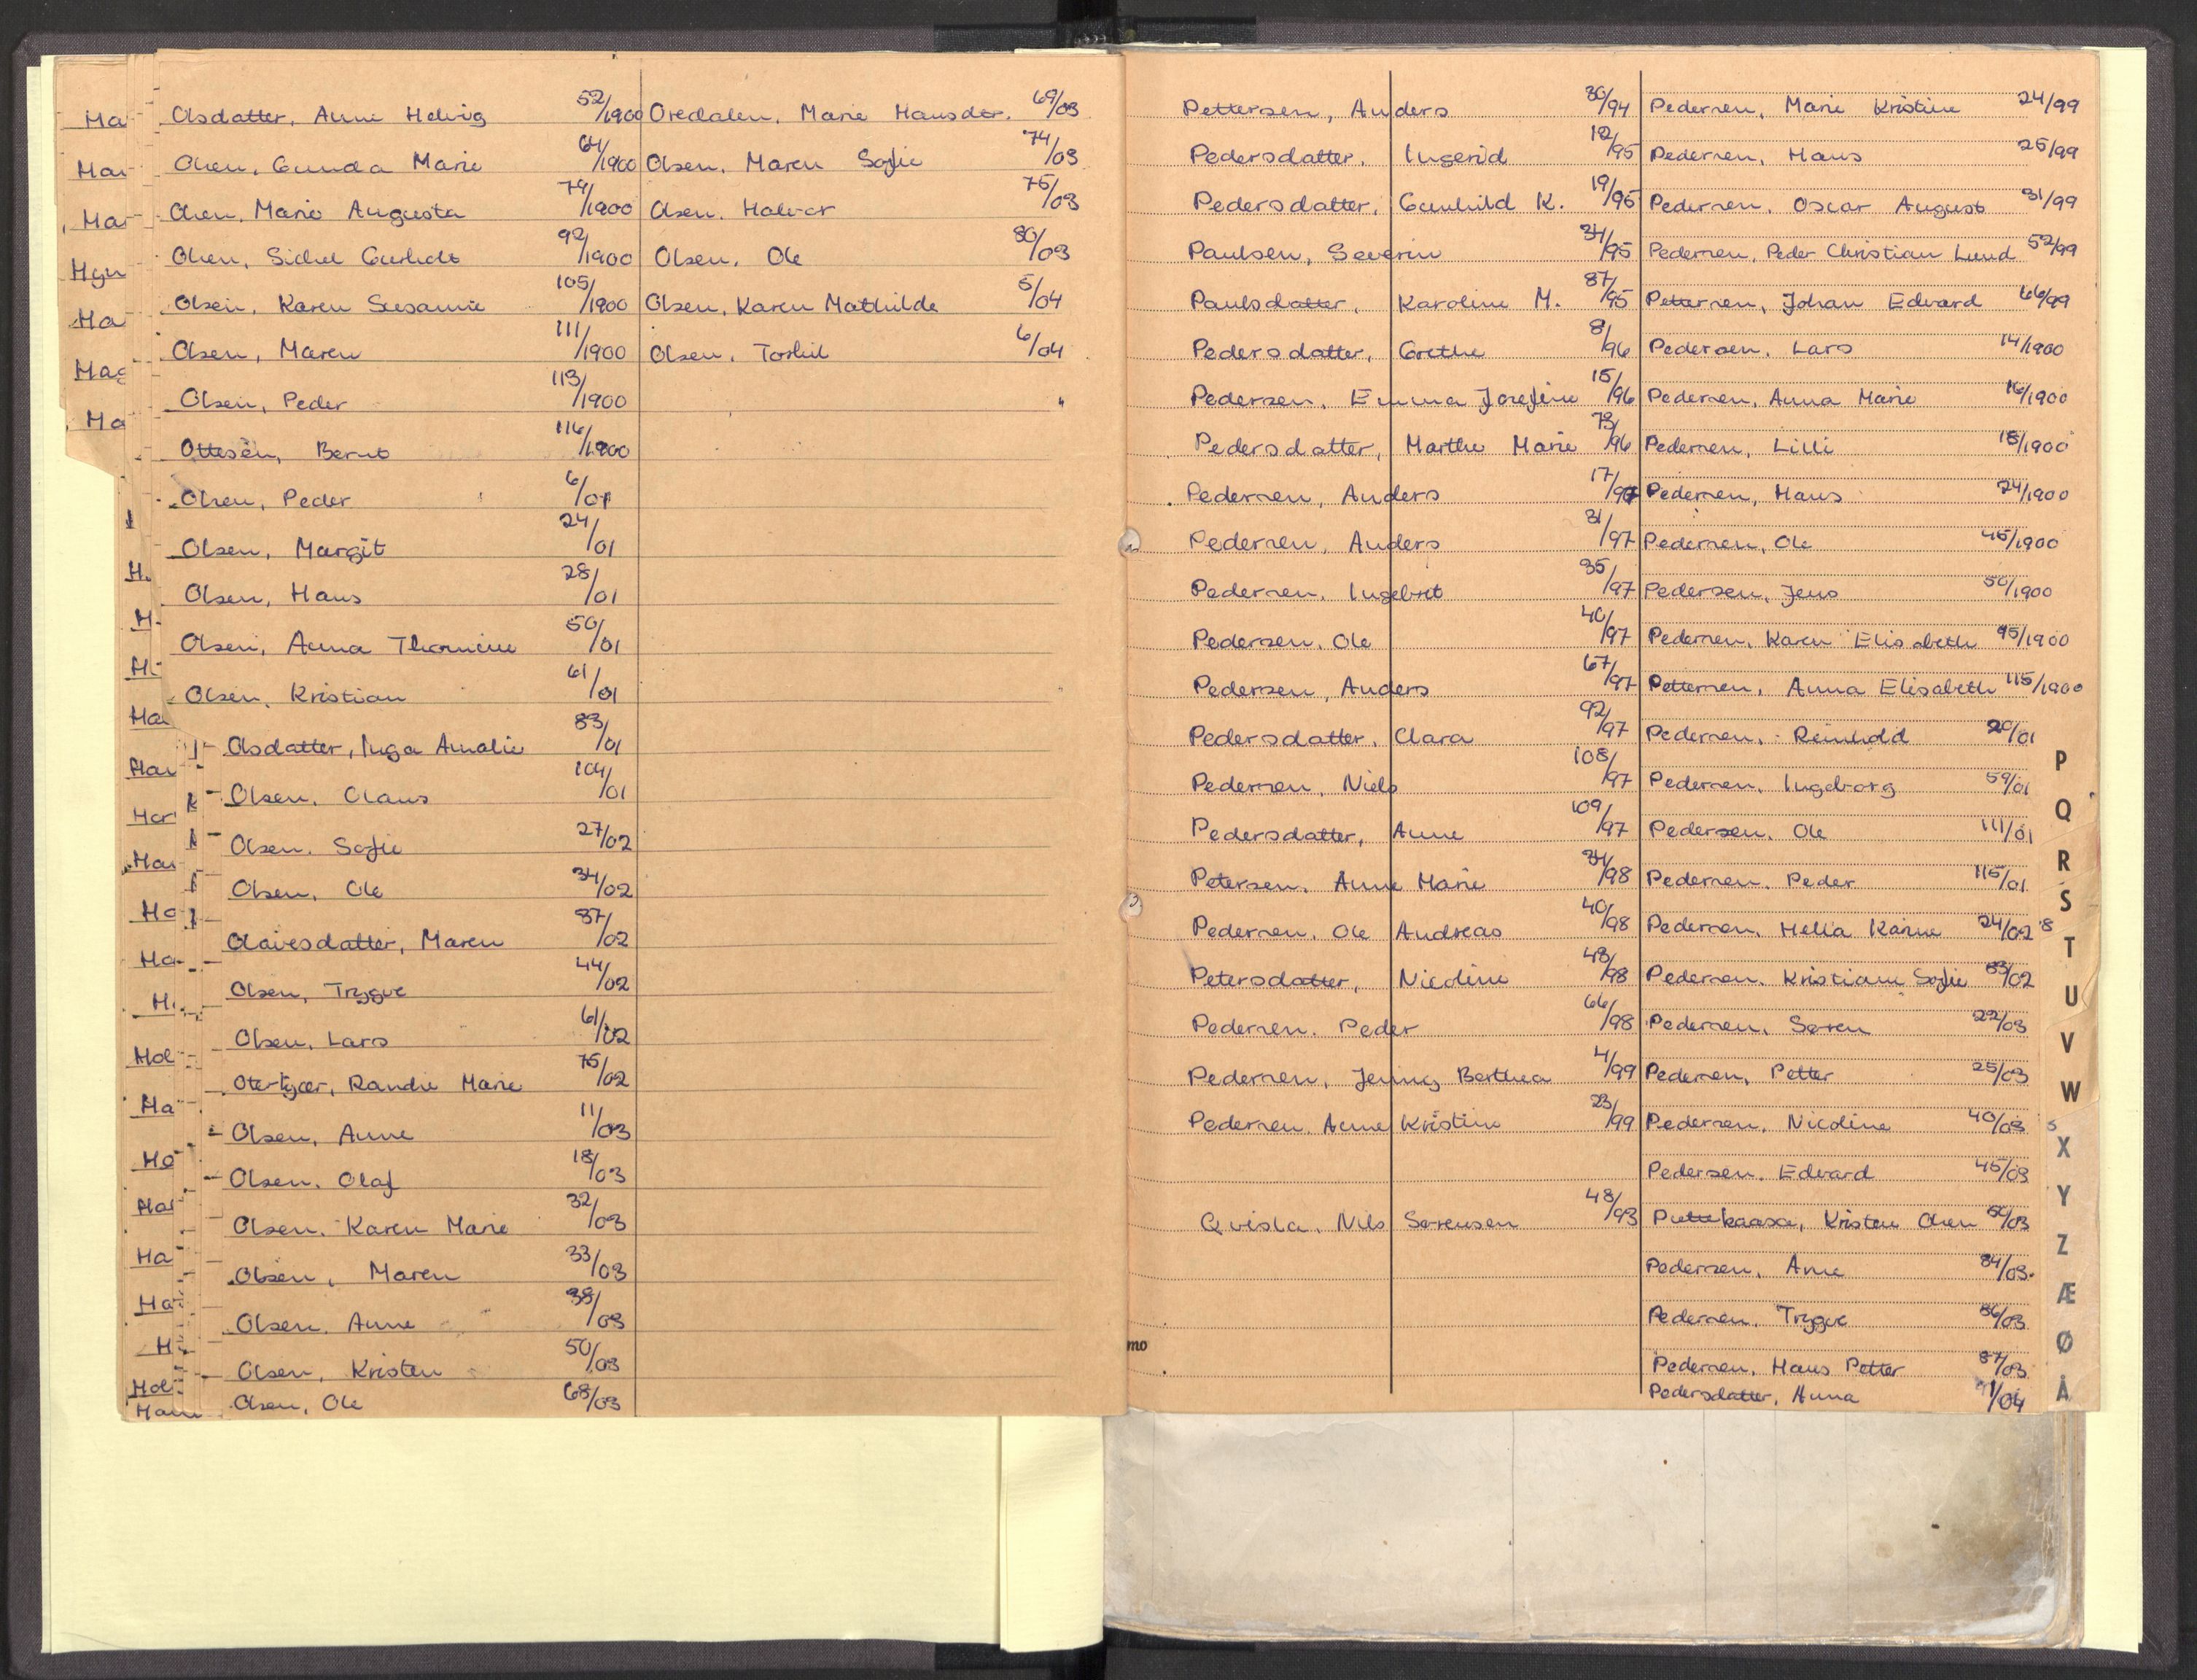 Olsdatter, Anne Helvig 52/1900
Olsen, Gunda Marie 64/1900
Olsen, Marie Augusta 79/1900
Olsen, Sidsel 92/1900
Olsen, Karen Susanne 105/1900
Olsen, Maren 111/1900
Olsen, Peder 113/1900
Ottesen, Bernt 116/1900
Olsen, Peder 6/01
Olsen, Margit 24/01
Olsen, Hans 28/01
Olsen, Anna Thomine 50/01
Olsen, Kristian 61/01
Olsdatter, Inga Amalie 83/01
Olsen, Claus 104/01
Olsen, Sofie 27/02
Olsen, Ole 34/02
Olavesdatter, Maren 37/02
Olsen, Trygve 44/02
Olsen, Lars 61/02
Oterkjær, Randie Marie 75/02
Olsen, Anne 11/03
Olsen, Olaf 18/03
Olsen, Karen Marie 32/03
Olsen, Maren 33/03
Olsen, Anne 38/03
Olsen, Kristen 50/03
Olsen, Ole 68/03
Oredalen, Marie Hansdtr. 69/03
Olsen, Maren Sofie 74/03
Olsen, Halvor 75/03
Olsen, Ole 80/03
Olsen, Karen Mathilde 5/04
Olsen, Torkil 6/04
Pettersen, Anders 30/94
Pedersdatter, Ingerid 12/95
Pedersdatter, Gunhild K. 19/95
Paulsen, Severin 34/95
Paulsdatter, Karoline M. 87/95
Pedersdatter, Grethe 8/96
Pedersen, Emma Josefine 15/96
Pedersdatter, Marthe Marie 73/96
Pedersen, Anders 17/97
Pedersen, Anders 31/97
Pedersen, Ingebret 35/97
Pedersen, Ole 40/97
Pedersen, Anders 67/97
Pedersdatter, Clara 92/97
Pedersen, Niels 108/97
Pedersdatter, Anne 109/97
Petersen, Anne Marie 34/98
Pedersen, Ole Andreas 40/98
Petersdatter, Nicoline 48/98
Pedersen, Peder 66/98
Pedersen, Jenny Berthea 4/99
Pedersen, Anne Kristine 23/99
Qvisla, Nils Sørensen 48/93
Pedersen, Marie Kristine 24/99
Pedersen, Hans 25/99
Pedersen, Oscar August 31/99
Pedersen, Peder Christian Lund 52/99
Pettersen, Johan Edvard 66/99
Pedersen, Lars 14/1900
Pedersen, Anna Marie 16/1900
Pedersen, Lilli 18/1900
Pedersen, Hans 24/1900
Pedersen, Ole 45/1900
Pedersen, Jens 50/1900
Pedersen, Karen Elisabeth 95/1900
Pettersen, Anna Elisabeth 115/1900
Pedersen, Reinhold 20/01
Pedersen, Ingeborg 59/01
Pedersen, Ole 111/01
Pedersen, Peder 115/01
Pedersen, Helia Karine 24/02
Pedersen, Kristiane Sofie 83/02
Pedersen, Søren 22/03
Pedersen, Petter 25/03
Pedersen, Nicoline 40/03
Pedersen, Edvard 45/03
Puttekaasa, Kristen Olsen
Pedersen, Arne 84/03
Pedersen, Trygve 86/03
Pedersen, Hans Petter 87/03
Pedersdatter, Anna
P
Q
R
S
T
U
V
W
X
Y
Z
Æ
Ø
Å